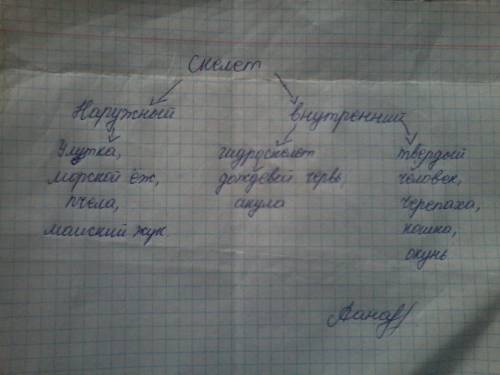 Скелет
Наружный
внутренний
Улитка,
морской ёж,
пчела,
майский жук.
гидроскелет
дождевой червь,
акула
твердый
человек,
черепаха,
кошка,
окунь